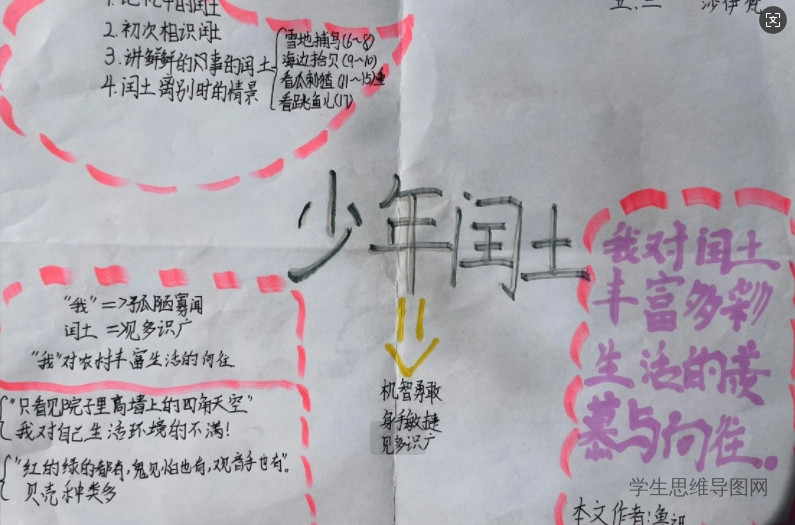 五.三
2.初次相识闰土
3.讲新鲜的闰土
4.闰土离别时的情景
雪地捕鸟(6~8)
海边拾贝(9~10)
看瓜刺猹(11~15)重
看跳鱼儿(17)
少年闰土
机智勇敢
身手敏捷
见多识广
"我" =>孤陋寡闻
闰土 =见多识广
"我"对农村丰富生活的向往
"只看见院子里高墙上的四角天空"
我对自己生活环境的不满!
"红的绿的都有,鬼见怕也有,观音手也有"。
贝壳种类多
我对闰土
丰富多彩
生活的羡
慕与向往。
学生思维导图网
本文作者:鲁迅